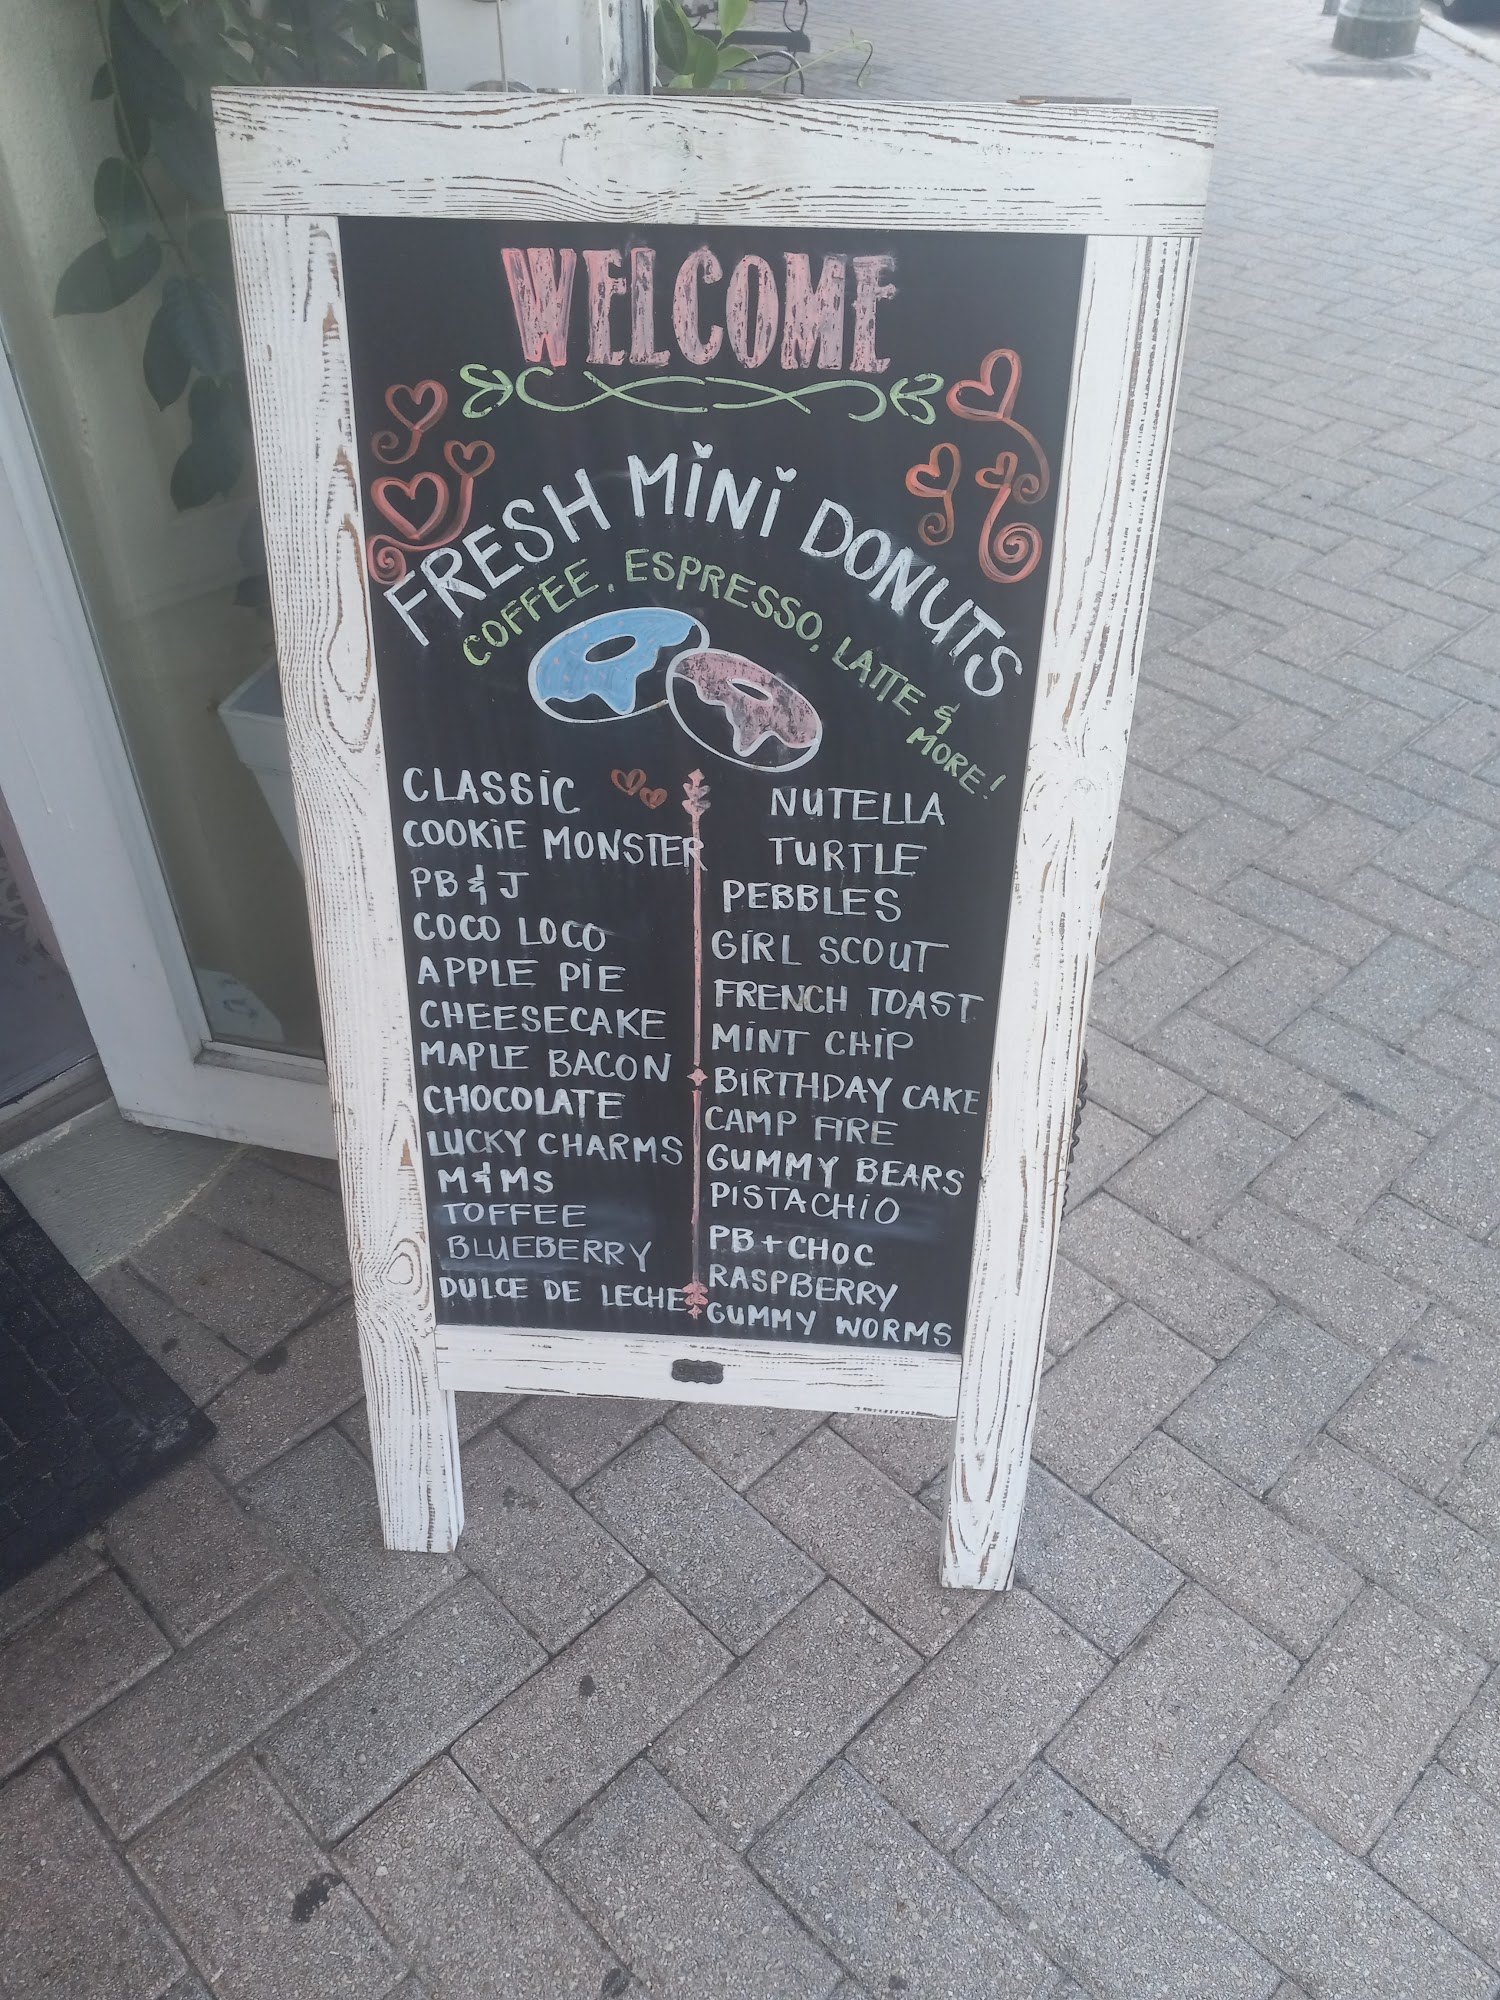 WELCOME
FRESH MINI DONUTS
COFFEE, ESPRESSO, LATTE & MORE!
CLASSIC
COOKIE MONSTER
PB & J
COCO LOCO
APPLE PIE
CHEESECAKE
MAPLE BACON
CHOCOLATE
LUCKY CHARMS
M&MS
TOFFEE
BLUEBERRY
DULCE DE LECHE
NUTELLA
TURTLE
PEBBLES
GIRL SCOUT
FRENCH TOAST
MINT CHIP
BIRTHDAY CAKE
CAMP FIRE
GUMMY BEARS
PISTACHIO
PB + CHOC
RASPBERRY
GUMMY WORMS